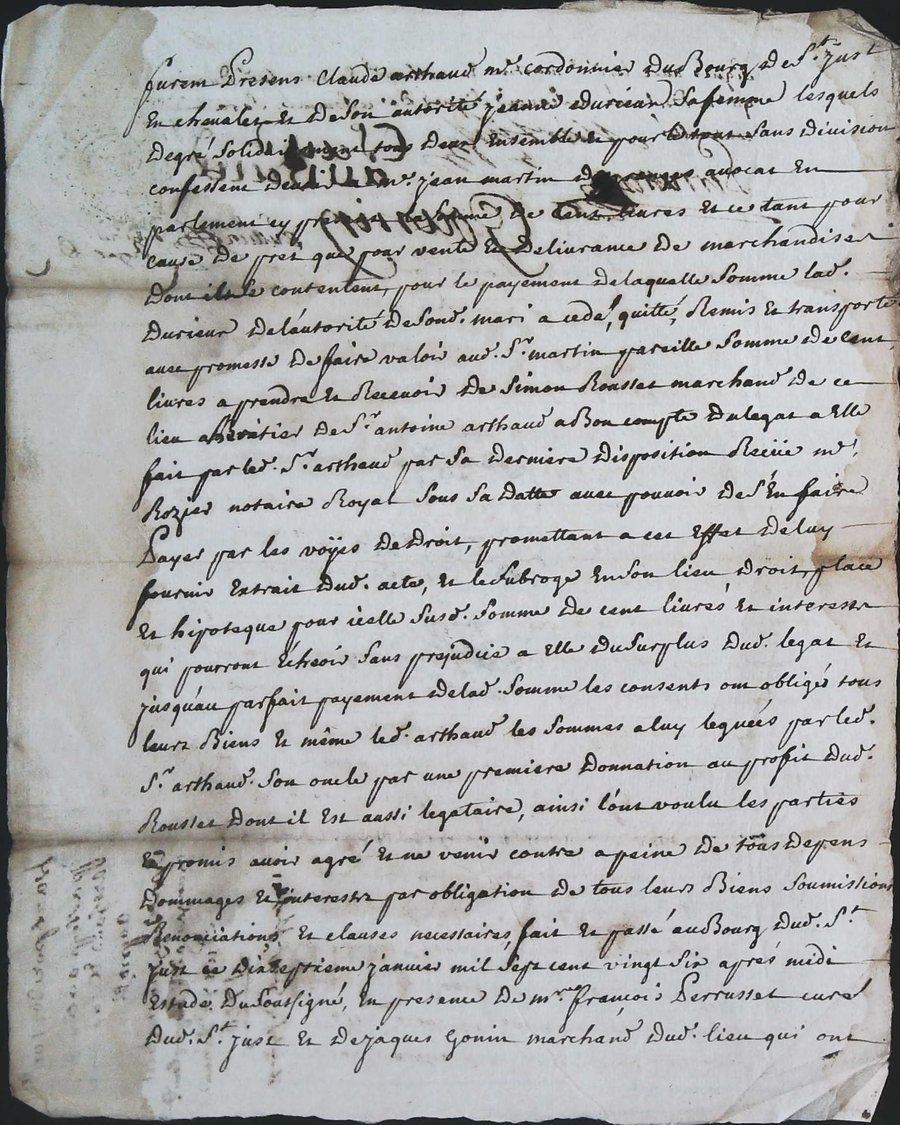 furem Presens Claude arthaud me. cordonnier du Bourg de St. just
En chevalet et de son autorité jeanne durieur sa femme lesquels
de gré solidairement tous deux Ensemble pour sans division
confessent a me. jean martin avocat En
parlement cy somme de cent livres et ce tant pour
cause de pret que pour vente et delivrance de marchandises
dont ils se contentent, pour le payement de laqualle somme lad.
durieur de l'autorité de sond. mari a cedé, quitté, Remis Et transporté
avec promesse de faire valoir aud. Sr. martin pareille somme de cent
livres a prendre et Recevoir de Simon Rousset marchand de ce
lieu heritier de Sr. antoine arthaud a Bon compte du legat a Elle
fait par led. Sr. arthaud par sa derniere disposition Reçüe me.
Rozier notaire Royal sous sa datte avec pouvoir de s'En faire
Payer par les voÿes de droit, promettant a cet Effet de luy
fournir Extrait dud. acte, et le subroge En son lieu, droit, place
Et hipoteque pour icelle susd. somme de cent livres et interests
qui pourront Echeoir sans prejudice a Elle du surplus dud. legat Et
jusqu'au parfait payement de lad. somme les consents ont obligés tous
leurs Biens Et même led. arthaud les sommes a luy leguées par led.
Sr. arthaud. son oncle par une premiere donnation au profit dud.
Rousset dont il Est aussi legataire, ainsi l'ont voulu les parties
Et promis avoir agré Et ne venir contre a peine de tous depens
dommages Et interests par obligation de tous leurs Biens soumissions
Renonciations Et clauses necessaires, fait Et passé au Bourg dud. St.
just ce dixseptieme janvier mil sept cent vingt six aprés midi
Estude du soussigné, En presence de mre. françois Perrusset curé
dud. St. just Et de jaques Gonin marchand dud. lieu qui ont